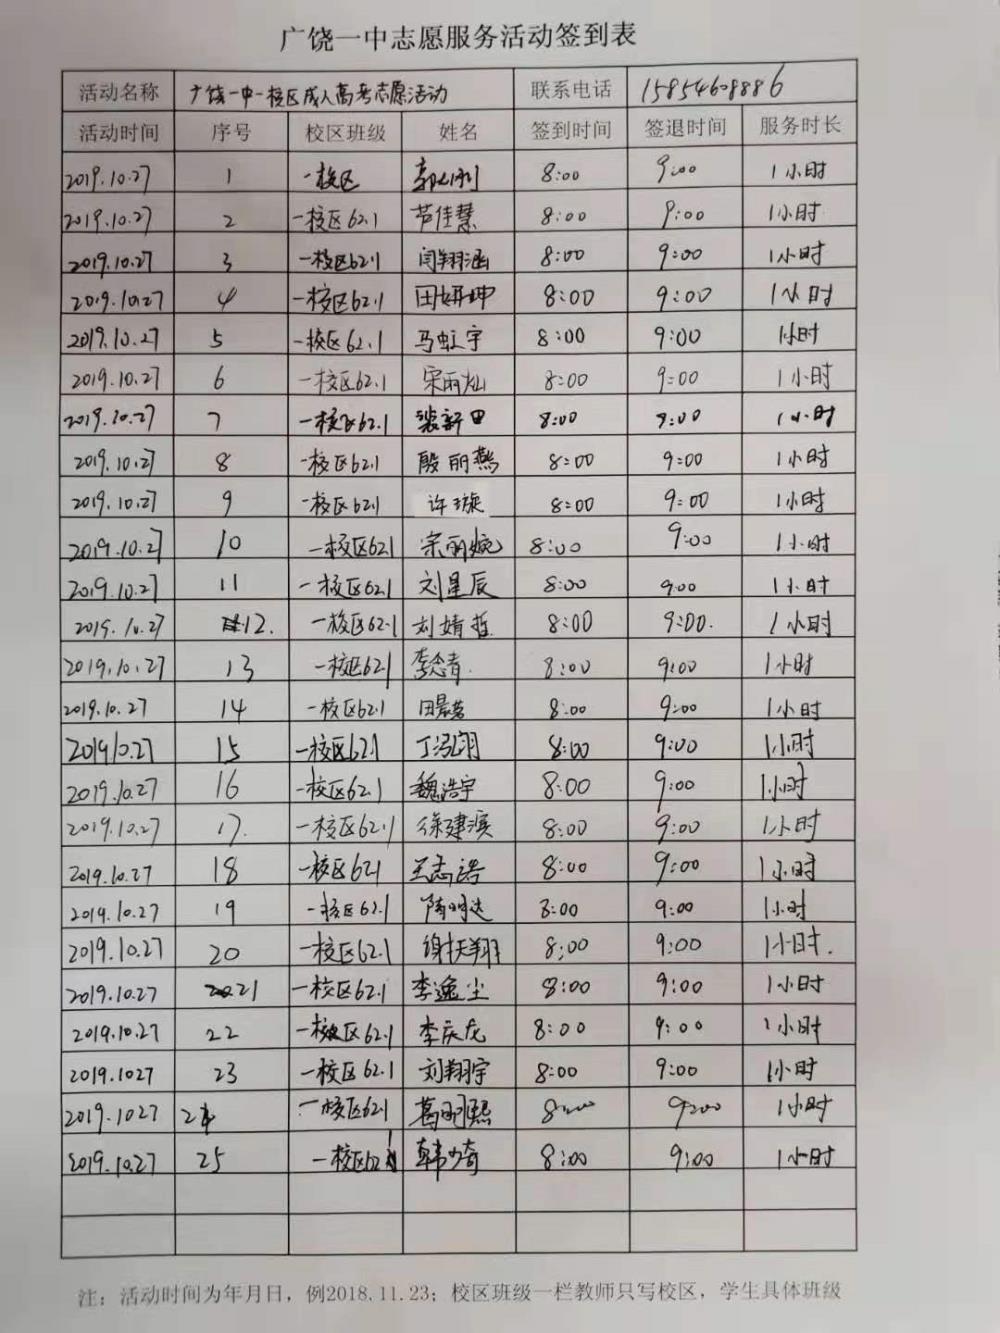 广饶一中志愿服务活动签到表
活动名称 广饶一中一校区成人高考志愿活动 联系电话 15854608886
活动时间 序号 校区班级 姓名 签到时间 签退时间 服务时长
2019.10.27 1 一校区 8:00 9:00 1小时
2019.10.27 2 一校区62.1 芦佳慧 8:00 9:00 1小时
2019.10.27 3 一校区62.1 闫翔涵 8:00 9:00 1小时
2019.10.27 4 一校区62.1 田妍坤 8:00 9:00 1小时
2019.10.27 5 一校区62.1 马虹宇 8:00 9:00 1小时
2019.10.27 6 一校区62.1 宋雨灿 8:00 9:00 1小时
2019.10.27 7 一校区62.1 裴新田 8:00 9:00 1小时
2019.10.27 8 一校区62.1 殷丽燕 8:00 9:00 1小时
2019.10.27 9 一校区621 许璇 8:00 9:00 1小时
2019.10.27 10 一校区621 宋雨婉 8:00 9:00 1小时
2019.10.27 11 一校区62.1 刘星辰 8:00 9:00 1小时
2019.10.27 12. 一校区62.1 刘婧哲 8:00 9:00. 1小时
2019.10.27 13 一校区62.1 李念青 8:00 9:00 1小时
2019.10.27 14 一校区62.1 田晨茗 8:00 9:00 1小时
2019.10.27 15 一校区62.1 丁泓翔 8:00 9:00 1小时
2019.10.27 16 一校区62.1 魏浩宇 8:00 9:00 1小时
2019.10.27 17. 一校区62.1 徐建滨 8:00 9:00 1小时
2019.10.27 18 一校区621 王志涛 8:00 9:00 1小时
2019.10.27 19 一校区62.1 隋明达 8:00 9:00 1小时
2019.10.27 20 一校区62.1 谢抚翔 8:00 9:00 1小时.
2019.10.27 21 一校区62.1 李逸尘 8:00 9:00 1小时
2019.10.27 22 一校区62.1 李庆龙 8:00 9:00 1小时
2019.1027 23 一校区62.1 刘翔宇 8:00 9:00 1小时
2019.1027 24 一校区621 葛明熙 8:00 9:00 1小时
2019.10.27 25 一校区62.1 韩少奇 8:00 9:00 1小时
注：活动时间为年月日，例2018.11.23；校区班级一栏教师只写校区，学生具体班级